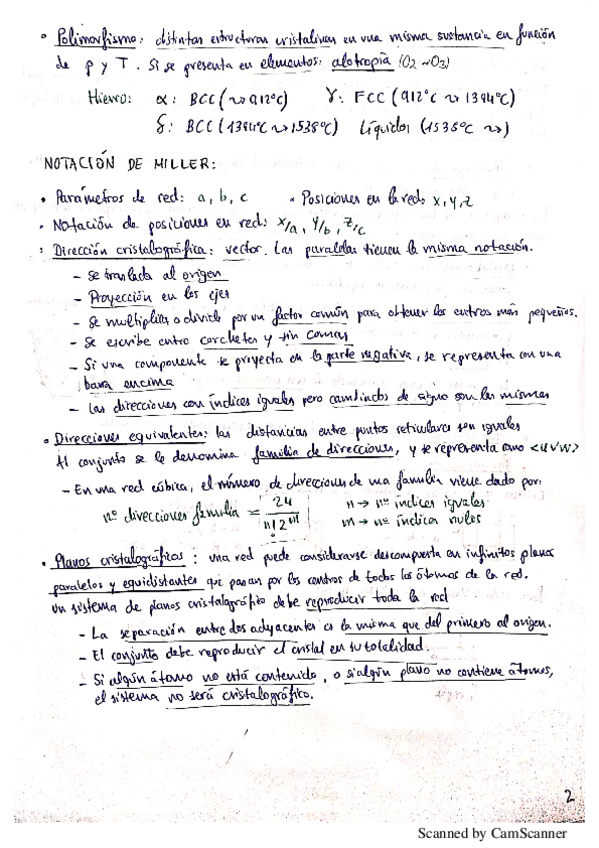 • Polimorfismo: distintas estructuras cristalinas en una misma sustancia en función
de p y T. Si se presenta en elementos: alotropía (O2 ~ O3)
Hierro: α: BCC (↝ 912°C) γ: FCC (912°C ↝ 1394°C)
δ: BCC (1394°C ↝ 1538°C) Líquido: (1538°C ↝)
NOTACIÓN DE MILLER:
• Parámetros de red: a, b, c • Posiciones en la red: x, y, z
• Notación de posiciones en red: x/a, y/b, z/c
• Dirección cristalográfica: vector. Las paralelas tienen la misma notación.
- Se traslada al origen
- Proyección en los ejes
- Se multiplica o divide por un factor común para obtener los enteros más pequeños.
- Se escribe entre corchetes y sin comas
- Si una componente se proyecta en la parte negativa, se representa con una
barra encima
- Las direcciones con índices iguales pero cambiados de signo son las mismas
• Direcciones equivalentes: las distancias entre puntos reticulares son iguales
Al conjunto se le denomina familia de direcciones, y se representa como <uvw>
- En una red cúbica, el número de direcciones de una familia viene dado por:
nº direcciones familia = 24 / n! 2^m n → nº índices iguales
m → nº índica nulos
• Planos cristalográficos: una red puede considerarse descompuesta en infinitos planos
paralelos y equidistantes que pasan por los centros de todos los átomos de la red.
Un sistema de planos cristalográfico debe reproducir toda la red
- La separación entre dos adyacentes es la misma que del primero al origen.
- El conjunto debe reproducir el cristal en su totalidad.
- Si algún átomo no está contenido, o si algún plano no contiene átomos,
el sistema no será cristalográfico.
2
Scanned by CamScanner